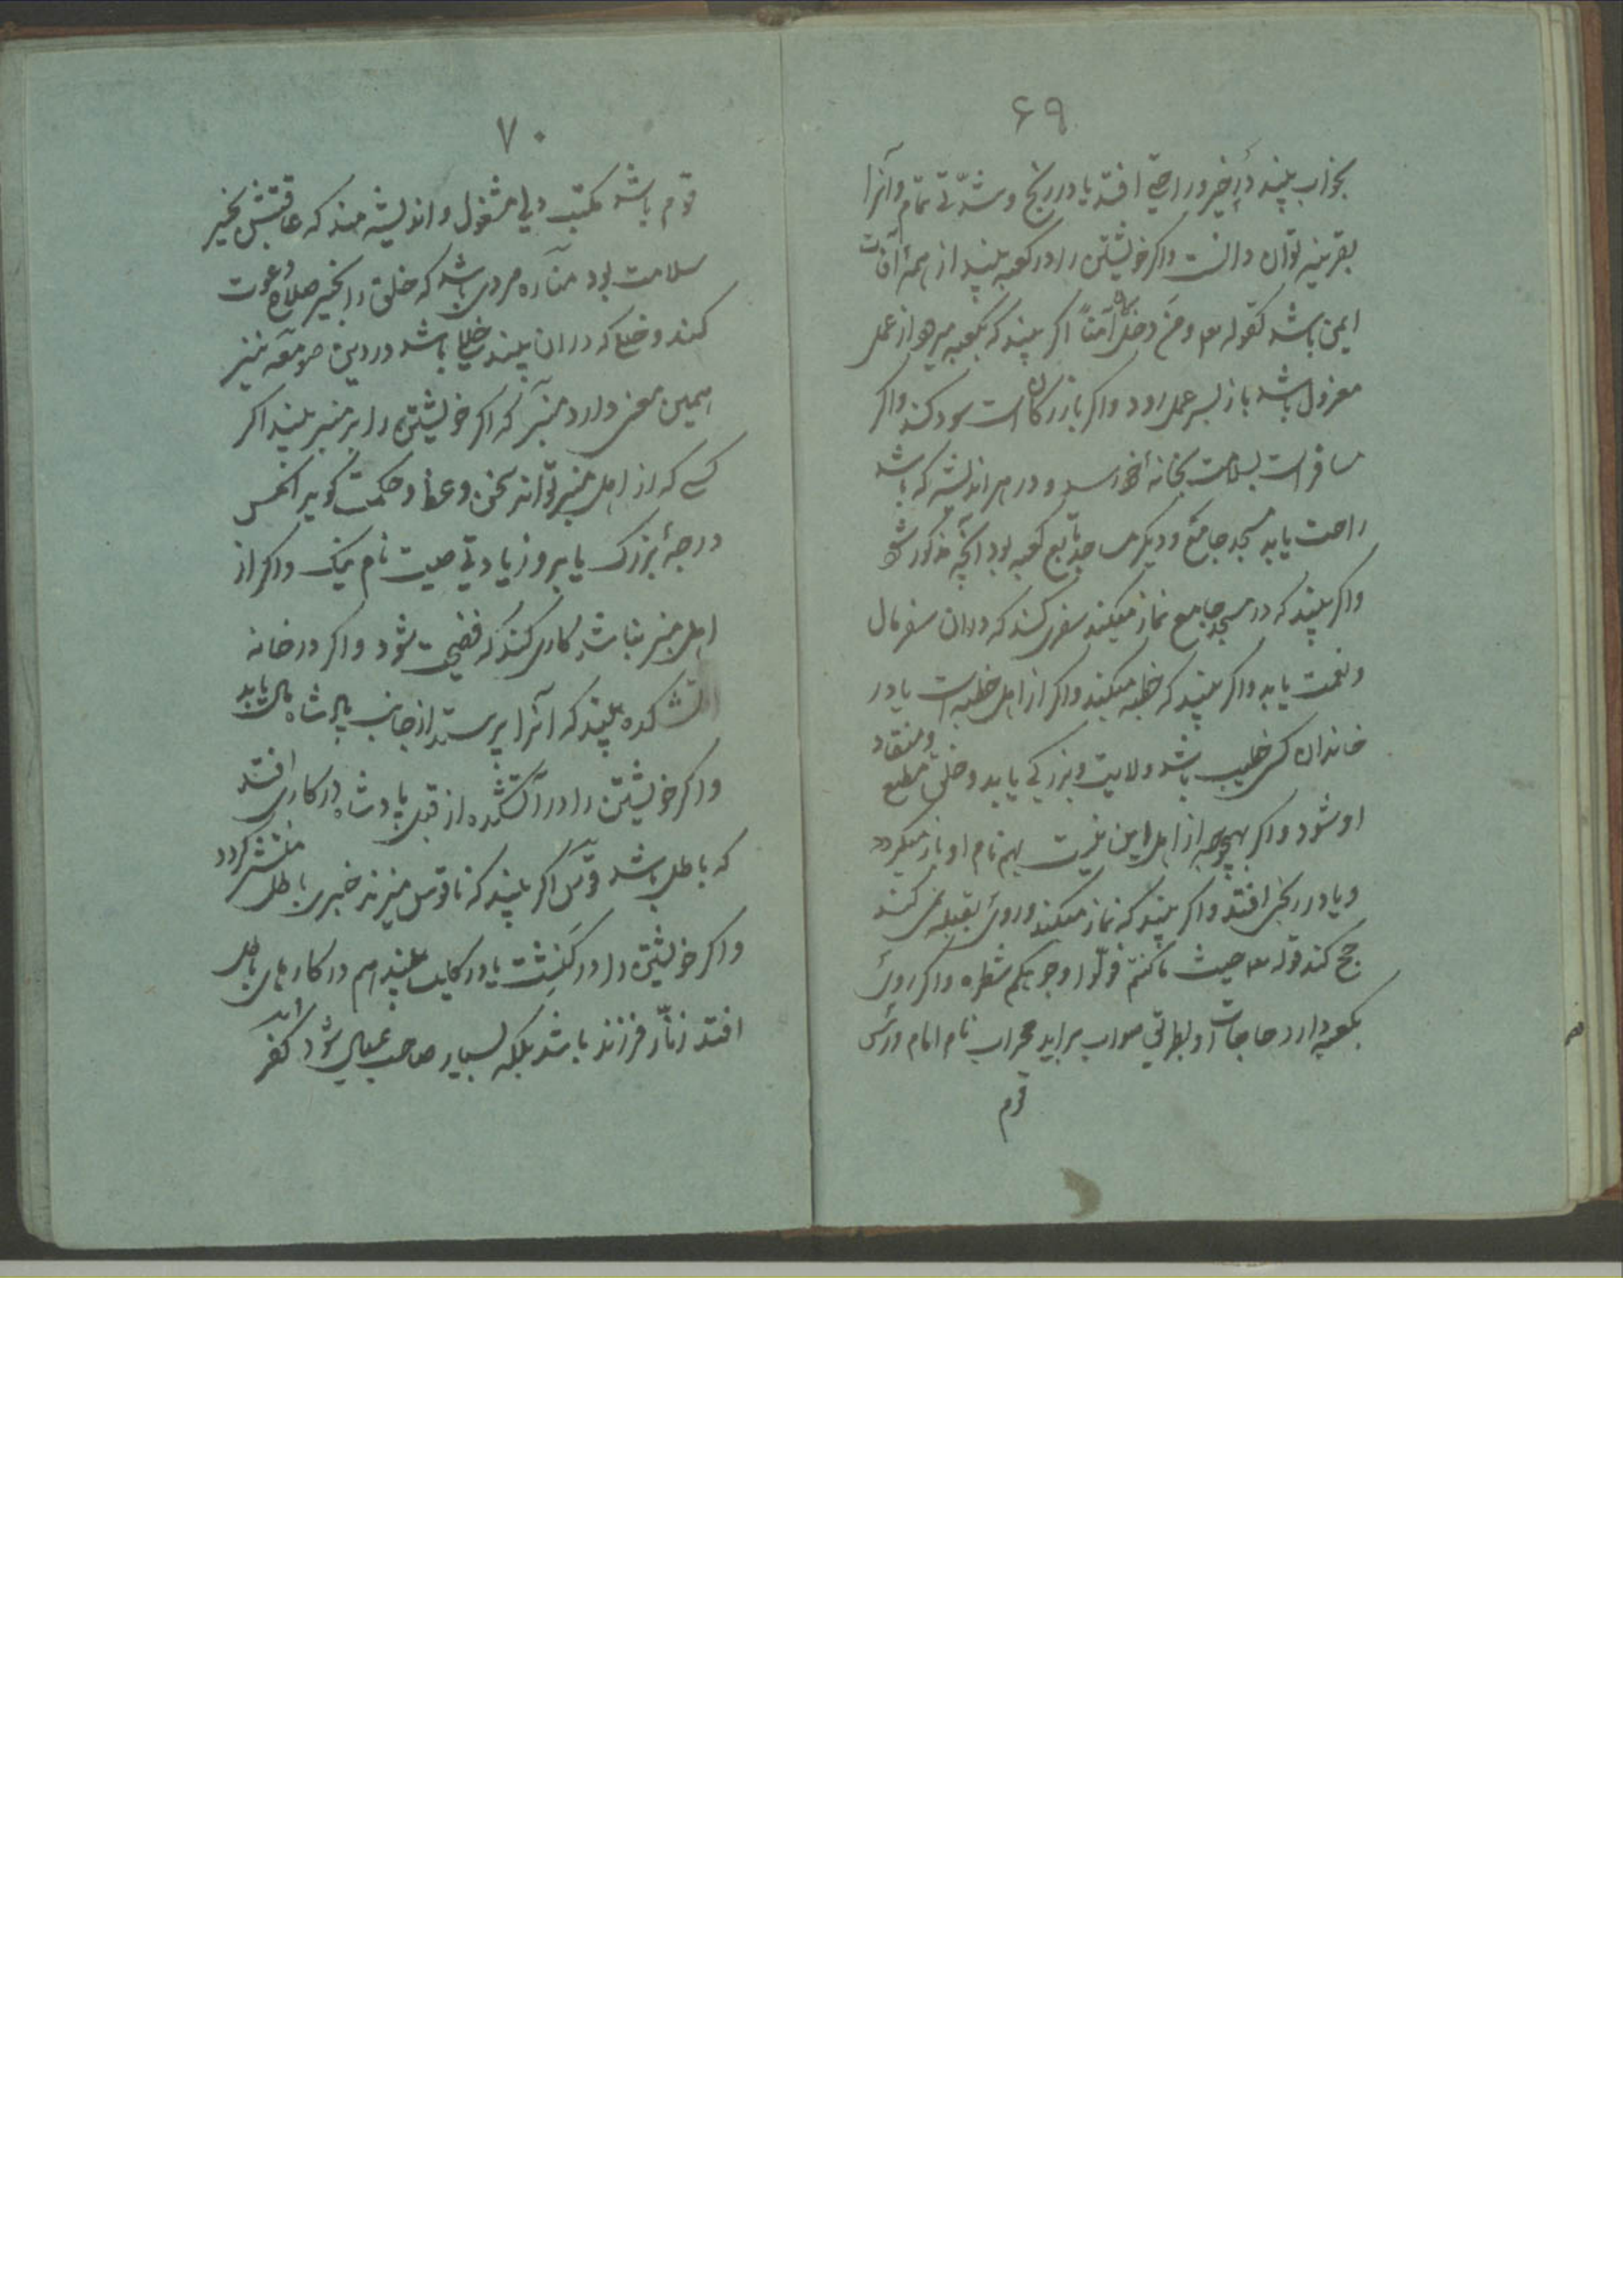 ۶۹
بخواب بیند در آخر در راحتی افتد یا در رنج و شدّتی تمام و آنرا
بقرینه توان دانست واکر خویشتن را در کعبه بیند از همهٔ آفات
ایمن باشد کقوله تع ومن دخله کان آمناً اکر بیند که بکعبه میرود از عمل
معزول باشد باز بسر عمل رود واکر بازرکان است سود کند واکر
مسافر است بسلامت بخانهٔ خود رسد و در هر اندیشه که باشد
راحت یابد مسجد جامع و دیکر مساجد تابع کعبه بود آنچه مذکور شد
واکر بیند که در مسجد جامع نماز میکند سفری کند که در ان سفر مال
و نعمت یابد واکر بیند که خطبه میکند واکر از اهل خطبه است یا در
خاندان کسی خطیب باشد ولایت و بزرکی یابد و خلق مطیع ومنقاد
او شود واکر بهیچوجه از اهل این نیست بهم نام او باز میکردد
و یا در رنجی افتد واکر بیند که نماز میکند و روی بقبله نمی کند
حج کند قوله تع حیث ما کنتم فولّوا وجوهکم شطره واکر روی
بکعبه دارد حاجات او بطریق صواب براید محراب نام امام و رئیس
قوم
۷۰
قوم باشد مکتب دیر مشغول و اندیشه مند که عاقبتش بخیر
سلامت بود مناره مردی باشد که خلق را بخیر صلاح دعوت
کند و خلعی که دران بیند خللی باشد در دین صومعه نیز
همین معنی دارد منبر که اکر خویشتن را بر منبر بیند اکر
کسی که از اهل منبر تواند سخن وعظ و حکمت کوید انکس
درجهٔ بزرک یابد و زیادتی صیت نام نیک واکر از
اهل منبر نباشد کاری کند که فضیحت شود واکر در خانه
آتشکده بیند که آنرا پرستد از جانب پادشاه مال یابد
واکر خویشتن را در آتشکده از قبل پادشاه در کاری افتد
که باطل باشد قوس اکر بیند که ناقوس میزند خبری باطل منتشر کردد
واکر خویشتن را در کنشت یا در کلیسا بیند هم در کارهای باطل
افتد زنّار فرزند باشد بلکه بسیار صاحب عیال شود کفر